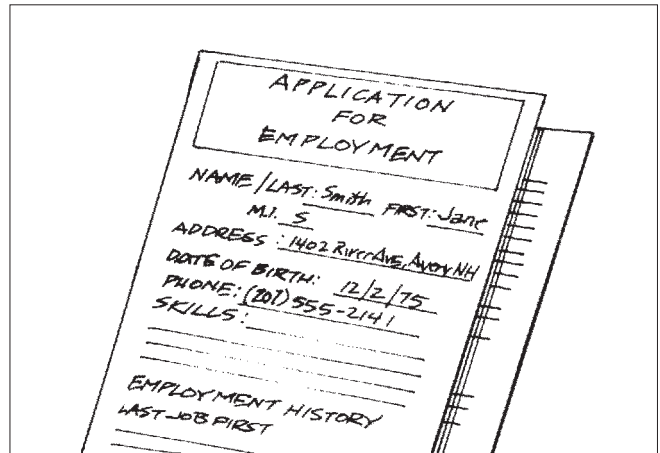 APPLICATION
FOR
EMPLOYMENT
NAME/LAST: Smith FIRST: Jane
M.I. S
ADDRESS: 1402 River Ave, Avery NH
DATE OF BIRTH: 12/2/75
PHONE: (207) 555-2141
SKILLS:
EMPLOYMENT HISTORY
LAST JOB FIRST